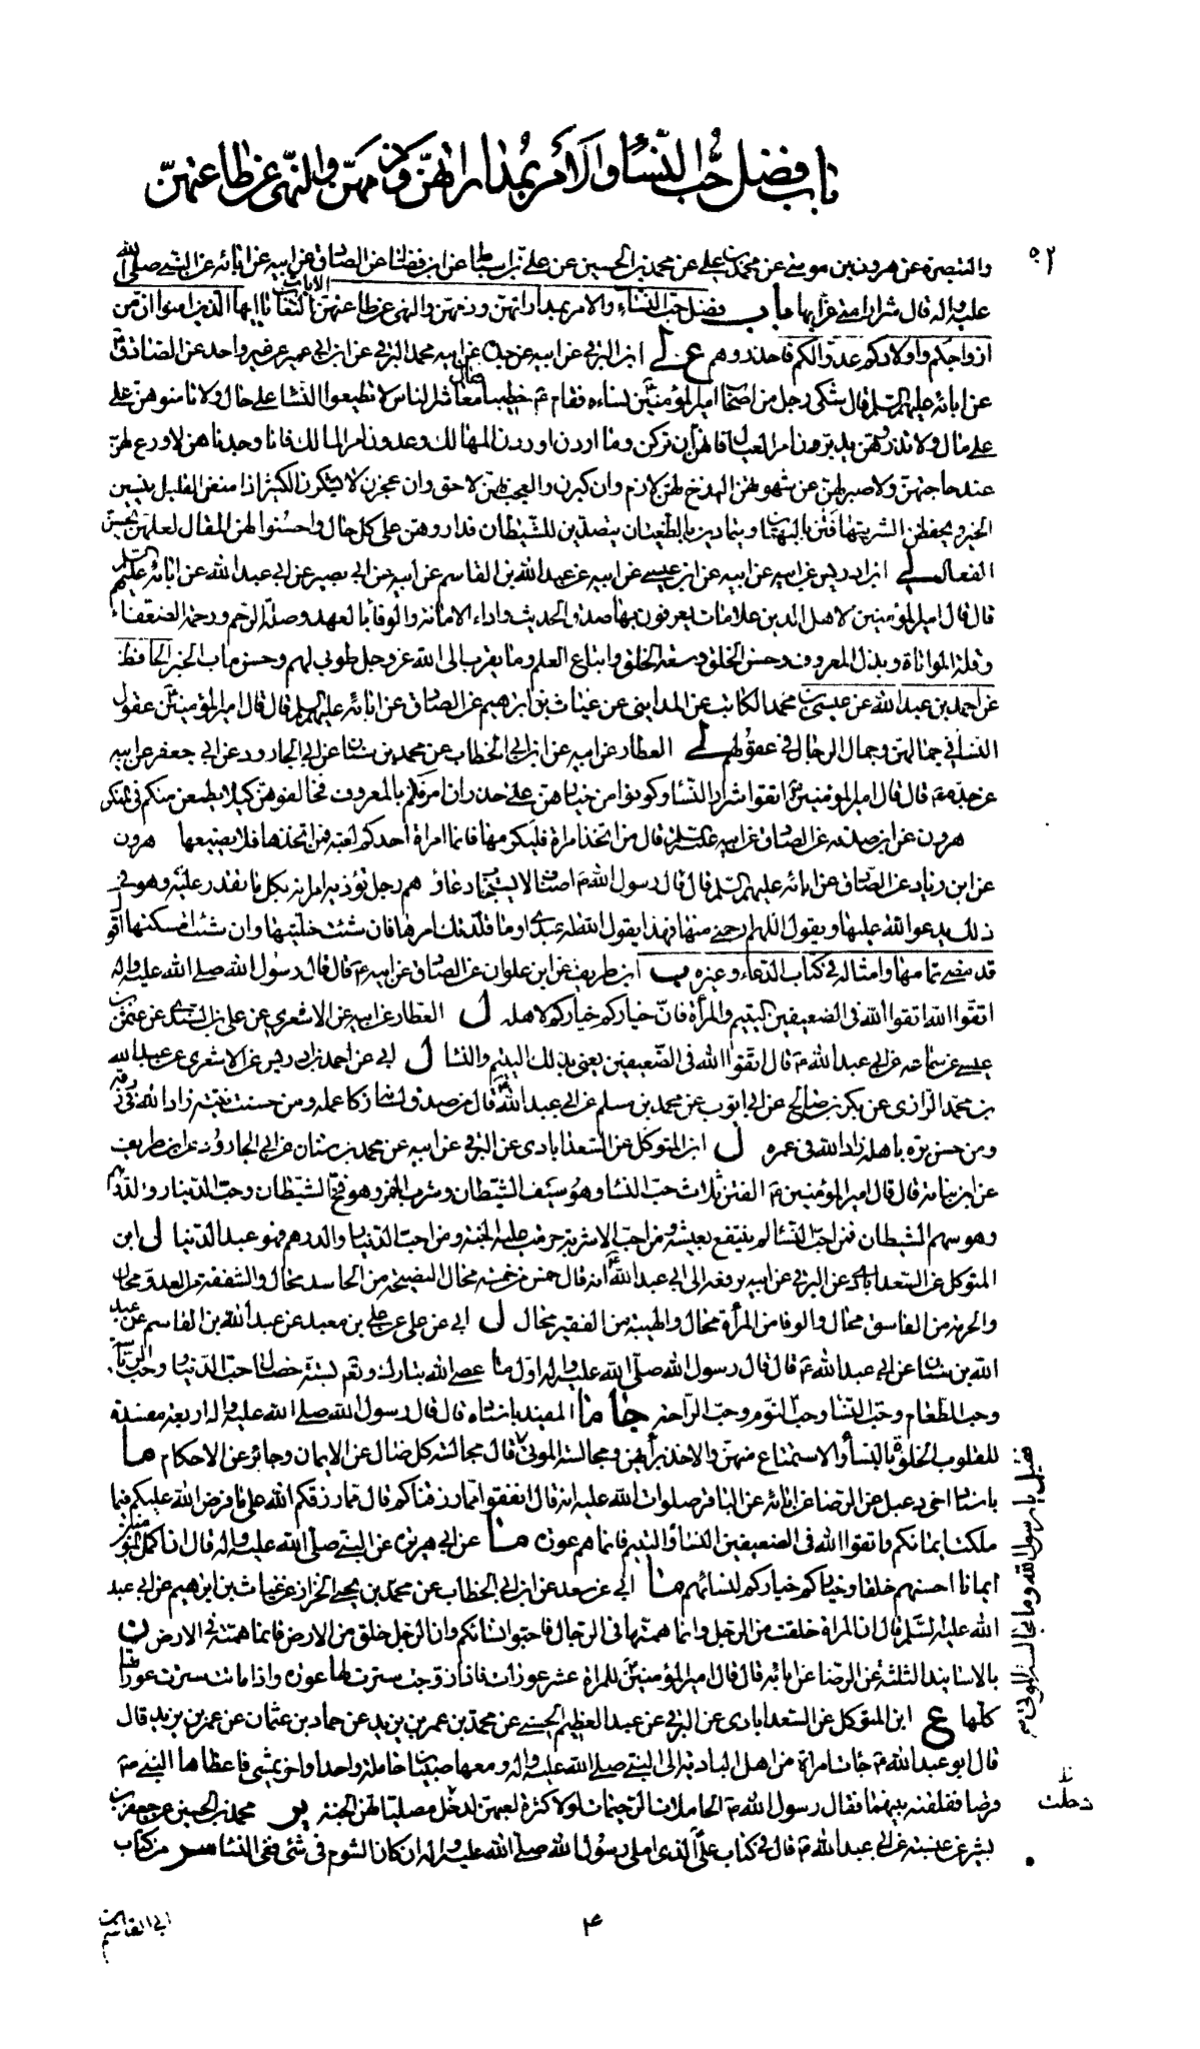 باب فضل حب النساء والامر بمداراتهن وذمهن والنهي عن طاعتهن
٥٢
والتبصرة عن هرون بن موسى عن محمد بن علي عن محمد بن الحسين عن علي بن اسباط عن ابن فضال عن الصادق عن ابيه عن ابائه عن النبي صلى الله
عليه واله قال باب فضل حب النساء والامر بمداراتهن وذمهن والنهي عن طاعتهن الايات التغابن يا ايها الذين امنوا ان من
ازواجكم واولادكم عدوا لكم فاحذروهم ع لي ابن البرقي عن ابيه عن جده عن ابيه محمد البرقي عن ابن ابي عمير عن غير واحد عن الصادق
عن ابائه عليهم السلم قال شكى رجل من اصحاب امير المؤمنين نساءه فقام ع خطيبا فقال معاشر الناس لا تطيعوا النساء على حال ولا تامنوهن على
على مال ولا تذروهن يدبرن امر العيال فانهن ان تركن وما اردن اوردن المهالك وعدون امر المالك فانا وجدناهن لا ورع لهن
عند حاجتهن ولا صبر لهن عن شهوتهن البذخ لهن لازم وان كبرن والعجب لهن لاحق وان عجزن لا يشكرن الكثير اذا منعن القليل ينسين
الخير ويحفظن الشر يتهافتن بالبهتان ويتمادين بالطغيان يتصدين للشيطان فداروهن على كل حال واحسنوا لهن المقال لعلهن يحسن
الفعال لي ابن ادريس عن ابيه عن ابن عيسى عن ابيه عن عبد الله بن القاسم عن ابيه عن ابي بصير عن ابي عبد الله عن ابائه عليهم السلم
قال قال امير المؤمنين لاهل الدين علامات يعرفون بها صدق الحديث واداء الامانة والوفا بالعهد وصلة الرحم ورحمة الضعفاء
وقلة المواتاة وبذل المعروف وحسن الخلق وسعة الخلق واتباع العلم وما يقرب الى الله عز وجل طوبى لهم وحسن ماب الخبر الحافظ
عن احمد بن عبد الله عن عيسى بن محمد الكاتب عن المدايني عن غياث بن ابرهيم عن الصادق عن ابائه عليهم السلم قال قال امير المؤمنين عقول
النساء في جمالهن وجمال الرجال في عقولهم لي العطار عن ابيه عن ابن ابي الخطاب عن محمد بن سنان عن ابي الجارود عن ابي جعفر عن ابيه
عن جده ع قال قال امير المؤمنين اتقوا شرار النساء وكونوا من خيارهن على حذر ان امرنكم بالمعروف فخالفوهن كيلا يطمعن منكم في المنكر
هرون عن ابن صدقه عن الصادق عن ابيه عليه السلم قال من اتخذ امراة فليكرمها فانما امراة احدكم لعبة فمن اتخذها فلا يضيعها هرون
عن ابن زياد عن الصادق عن ابائه عليهم السلم قال قال رسول الله ص اصناف لا يستجاب دعاؤهم رجل تؤذيه امراته بكل ما تقدر عليه وهو في
ذلك يدعو الله عليها ويقول اللهم ارحني منها فهذا يقول الله له عبدي اوما قلدتك امرها فان شئت خليتها وان شئت امسكتها اقول
قد مضى تمامها وامثاله في كتاب الدعاء وغيره ب ابن طريف عن ابن علوان عن الصادق عن ابيه ع قال قال رسول الله صلى الله عليه واله
اتقوا الله اتقوا الله في الضعيفين اليتيم والمرأة فان خياركم خياركم لاهله ل العطار عن ابيه عن الاشعري عن علي بن السندي عن عثمان بن
عيسى عن سماعه عن ابي عبد الله ع قال اتقوا الله في الضعيفين يعني بذلك اليتيم والنساء ل ابي عن احمد بن ادريس عن الاشعري عن عبد الله
بن محمد الرازي عن بكر بن صالح عن ابي ايوب عن محمد بن مسلم عن ابي عبد الله ع قال من صدق لسانه زكا عمله ومن حسنت نيته زاد الله في رزقه
ومن حسن بره باهله زاد الله في عمره ل ابن المتوكل عن السعدابادي عن البرقي عن ابيه عن محمد بن سنان عن ابي الجارود عن ابن طريف
عن ابن نباتة قال قال امير المؤمنين ع الفتن ثلاث حب النساء وهو سيف الشيطان وشرب الخمر وهو فخ الشيطان وحب الدينار والدرهم
وهو سهم الشيطان فمن احب النساء لم ينتفع بعيشه ومن احب الاشربة حرمت عليه الجنة ومن احب الدنيا والدرهم فهو عبد الدنيا ل ابن
المتوكل عن السعدابادي عن البرقي عن ابيه يرفعه الى ابي عبد الله ع انه قال خمس من خمسة محال النصيحة من الحاسد محال والشفقة من العدو محال
والحرمة من الفاسق محال والوفا من المرأة محال والهيبة من الفقير محال ل ابي عن علي عن علي بن معبد عن عبد الله بن القاسم عن عبد
الله بن سنان عن ابي عبد الله ع قال قال رسول الله صلى الله عليه واله اول ما عصي الله تبارك وتع بستة خصال حب الدنيا وحب الرياسة
وحب الطعام وحب النساء وحب النوم وحب الراحة جا ما المفيد باسناده قال قال رسول الله صلى الله عليه واله اربعة مفسدة
للقلوب الخلوة بالنساء والاستمتاع منهن والاخذ برأيهن ومجالسة الموتى قال مجالسة كل ضال عن الايمان وجائر عن الاحكام ما
باسناد اخي دعبل عن الرضا عن ابائه عن الباقر صلوات الله عليه انه قال انفقوا مما رزقناكم قال مما رزقكم الله على ما فرض الله عليكم فيما
ملكت ايمانكم واتقوا الله في الضعيفين النساء واليتيم فانما هم عورة ما عن ابي هريرة عن النبي صلى الله عليه واله قال ان اكمل المؤمنين
ايمانا احسنهم خلقا وخياركم خياركم لنسائهم ما ابي عن سعد عن ابن ابي الخطاب عن محمد بن يحيى الخزاز عن غياث بن ابرهيم عن ابي عبد
الله عليه السلم قال ان المراة خلقت من الرجل وانما همتها في الرجال فاحبوا نسائكم وان الرجل خلق من الارض فانما همته في الارض ن
بالاسانيد الثلثة عن الرضا عن ابائه قال قال امير المؤمنين للمراة عشر عورات فاذا زوجت سترت لها عورة واذا ماتت سترت عوراتها
كلها ع ابن المتوكل عن السعدابادي عن البرقي عن عبد العظيم الحسني عن محمد بن عمر بن يزيد عن حماد بن عثمان عن عمر بن يزيد قال
قال ابو عبد الله ع جات امراة من اهل البادية الى النبي صلى الله عليه واله ومعها صبيان حاملة واحدا واخر يمشي فاعطاها النبي ص
قرصا ففلقته بينهما فقال رسول الله ص الحاملات الرحيمات لولا كثرة لعبهن لدخل مصلياتهن الجنة ير محمد بن الحسين عن جعفر بن
بشير عن عنبسة عن ابي عبد الله ع قال في كتاب علي الذي املى رسول الله صلى الله عليه واله ان كان الشوم في شئ ففي النساء سر من كتاب
فقيل يا رسول الله وما مجالسة الموتى
دخلت
٤
ابي القاسم